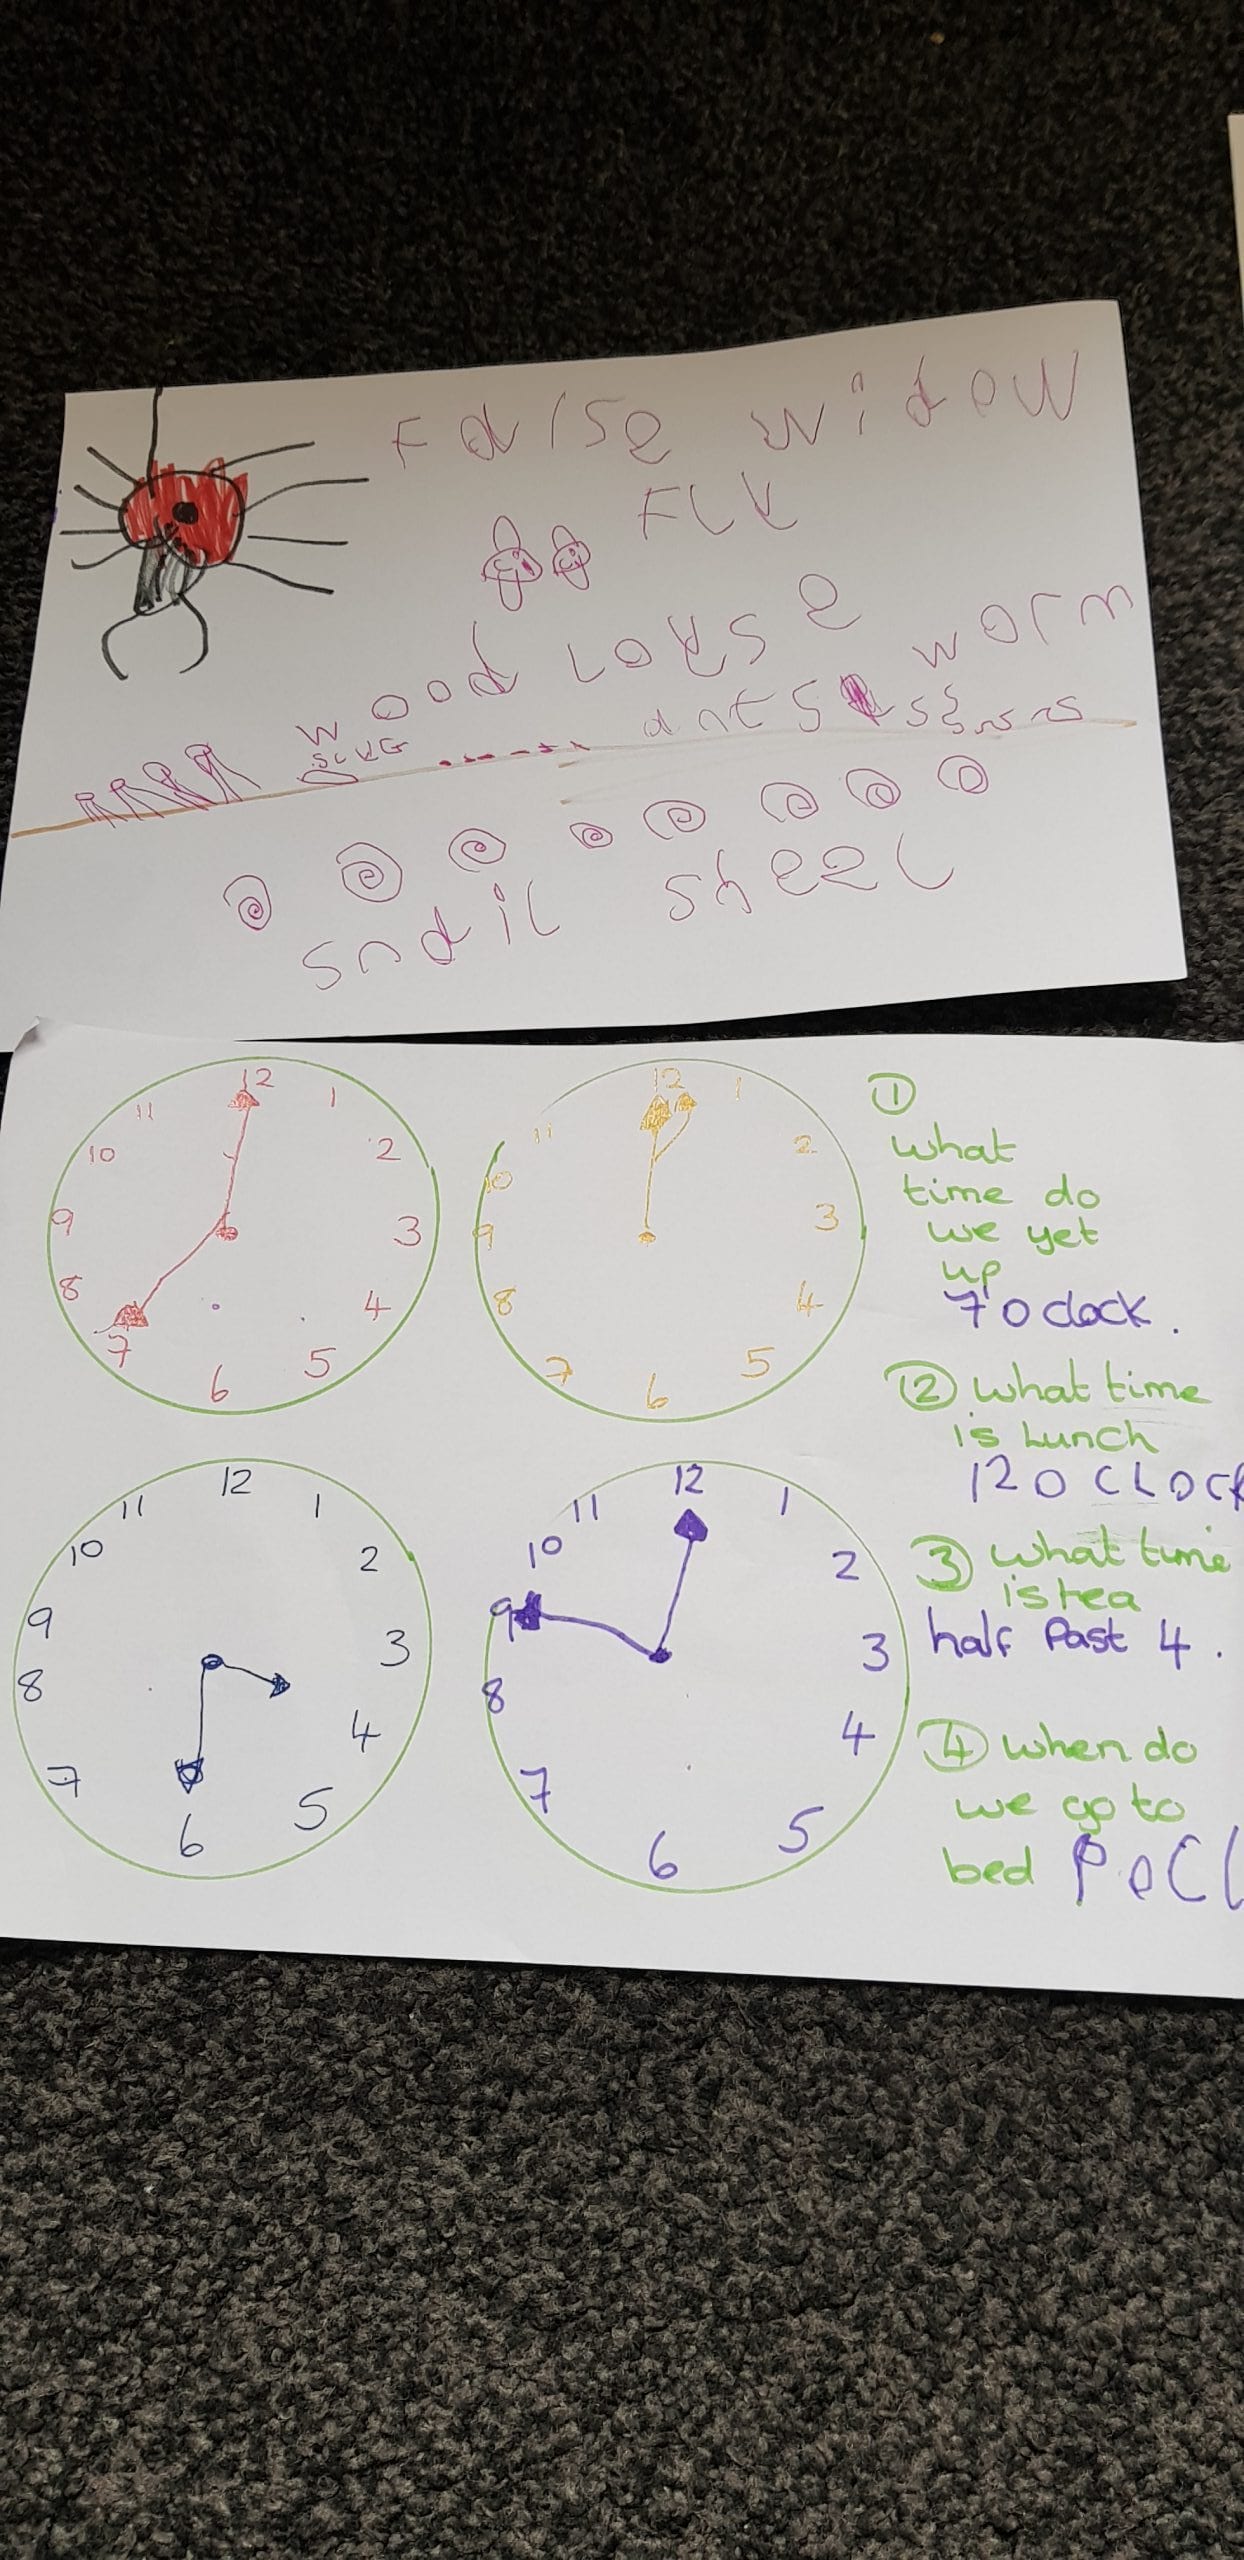 False widow
FLY
wood Louse
worm
SLUG
ants
snail sheel
12
11 1
10 2
9 3
8 4
7 5
6
12
11 1
10 2
9 3
8 4
7 5
6
①
what
time do
we yet
up
7'O clock.
② what time
is Lunch
12 O CLOCK
③ what time
is tea
half Past 4.
④ when do
we go to
bed
12
11 1
10 2
9 3
8 4
7 5
6
12
11 1
10 2
9 3
8 4
7 5
6